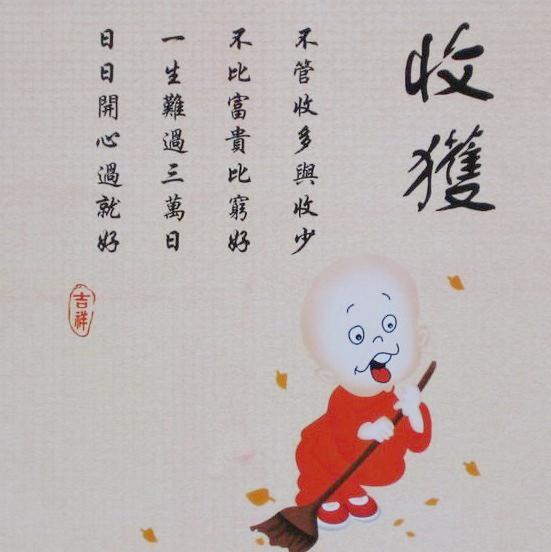 收獲
不管收多與收少
不比富貴比窮好
一生難過三萬日
日日開心過就好
吉祥